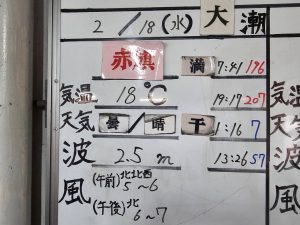 2/18(水) 大潮
赤旗 満 7:41 196
気温 18℃ 19:17 207
天気 曇/晴 干 1:16 7
波 2.5m 13:26 57
風 (午前) 北北西 5~6
(午後) 北 6~7